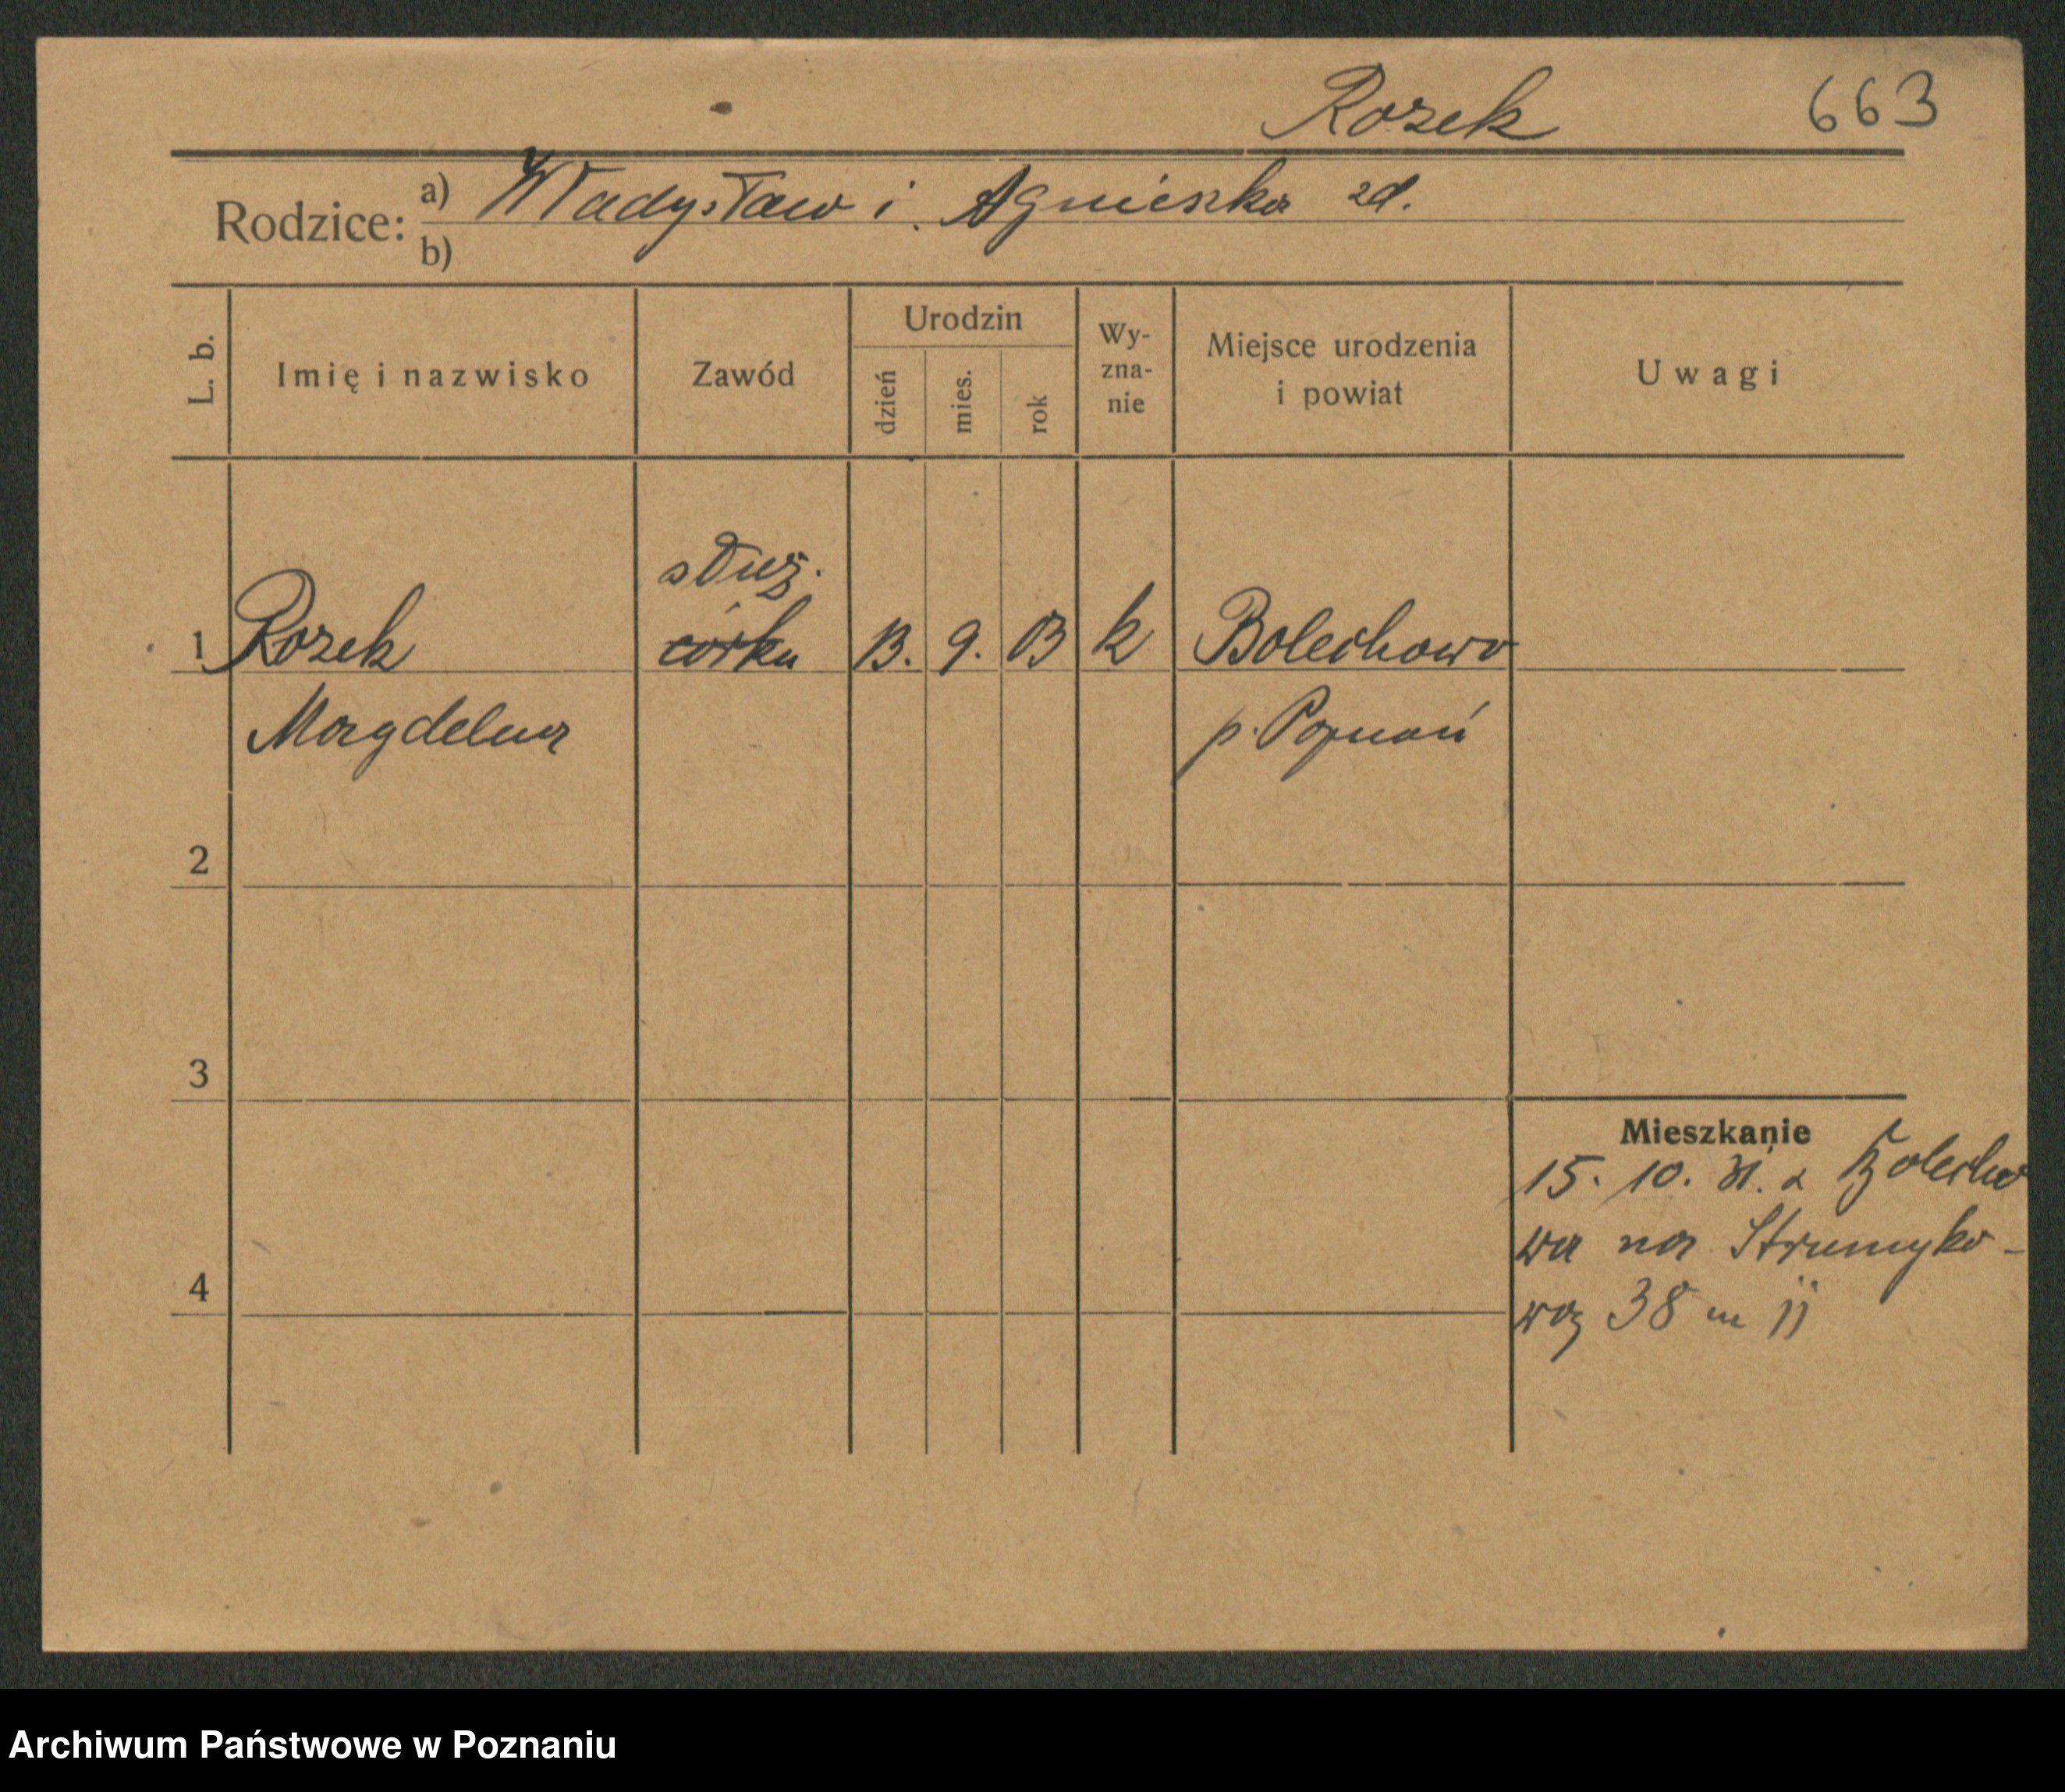 Rozek 663
Rodzice: a) Władysław i Agnieszka zd.
b)
L. b. Imię i nazwisko Zawód Urodzin dzień mies. rok Wy-zna-nie Miejsce urodzenia i powiat Uwagi
służ.
1 Rozek córka 13. 9. 13 k Bolechowo
Magdelena p. Poznań
2
3
Mieszkanie
15. 10. 31. z Bolecho
wa na Strumyko-
4
wą 38 m 11
Archiwum Państwowe w Poznaniu